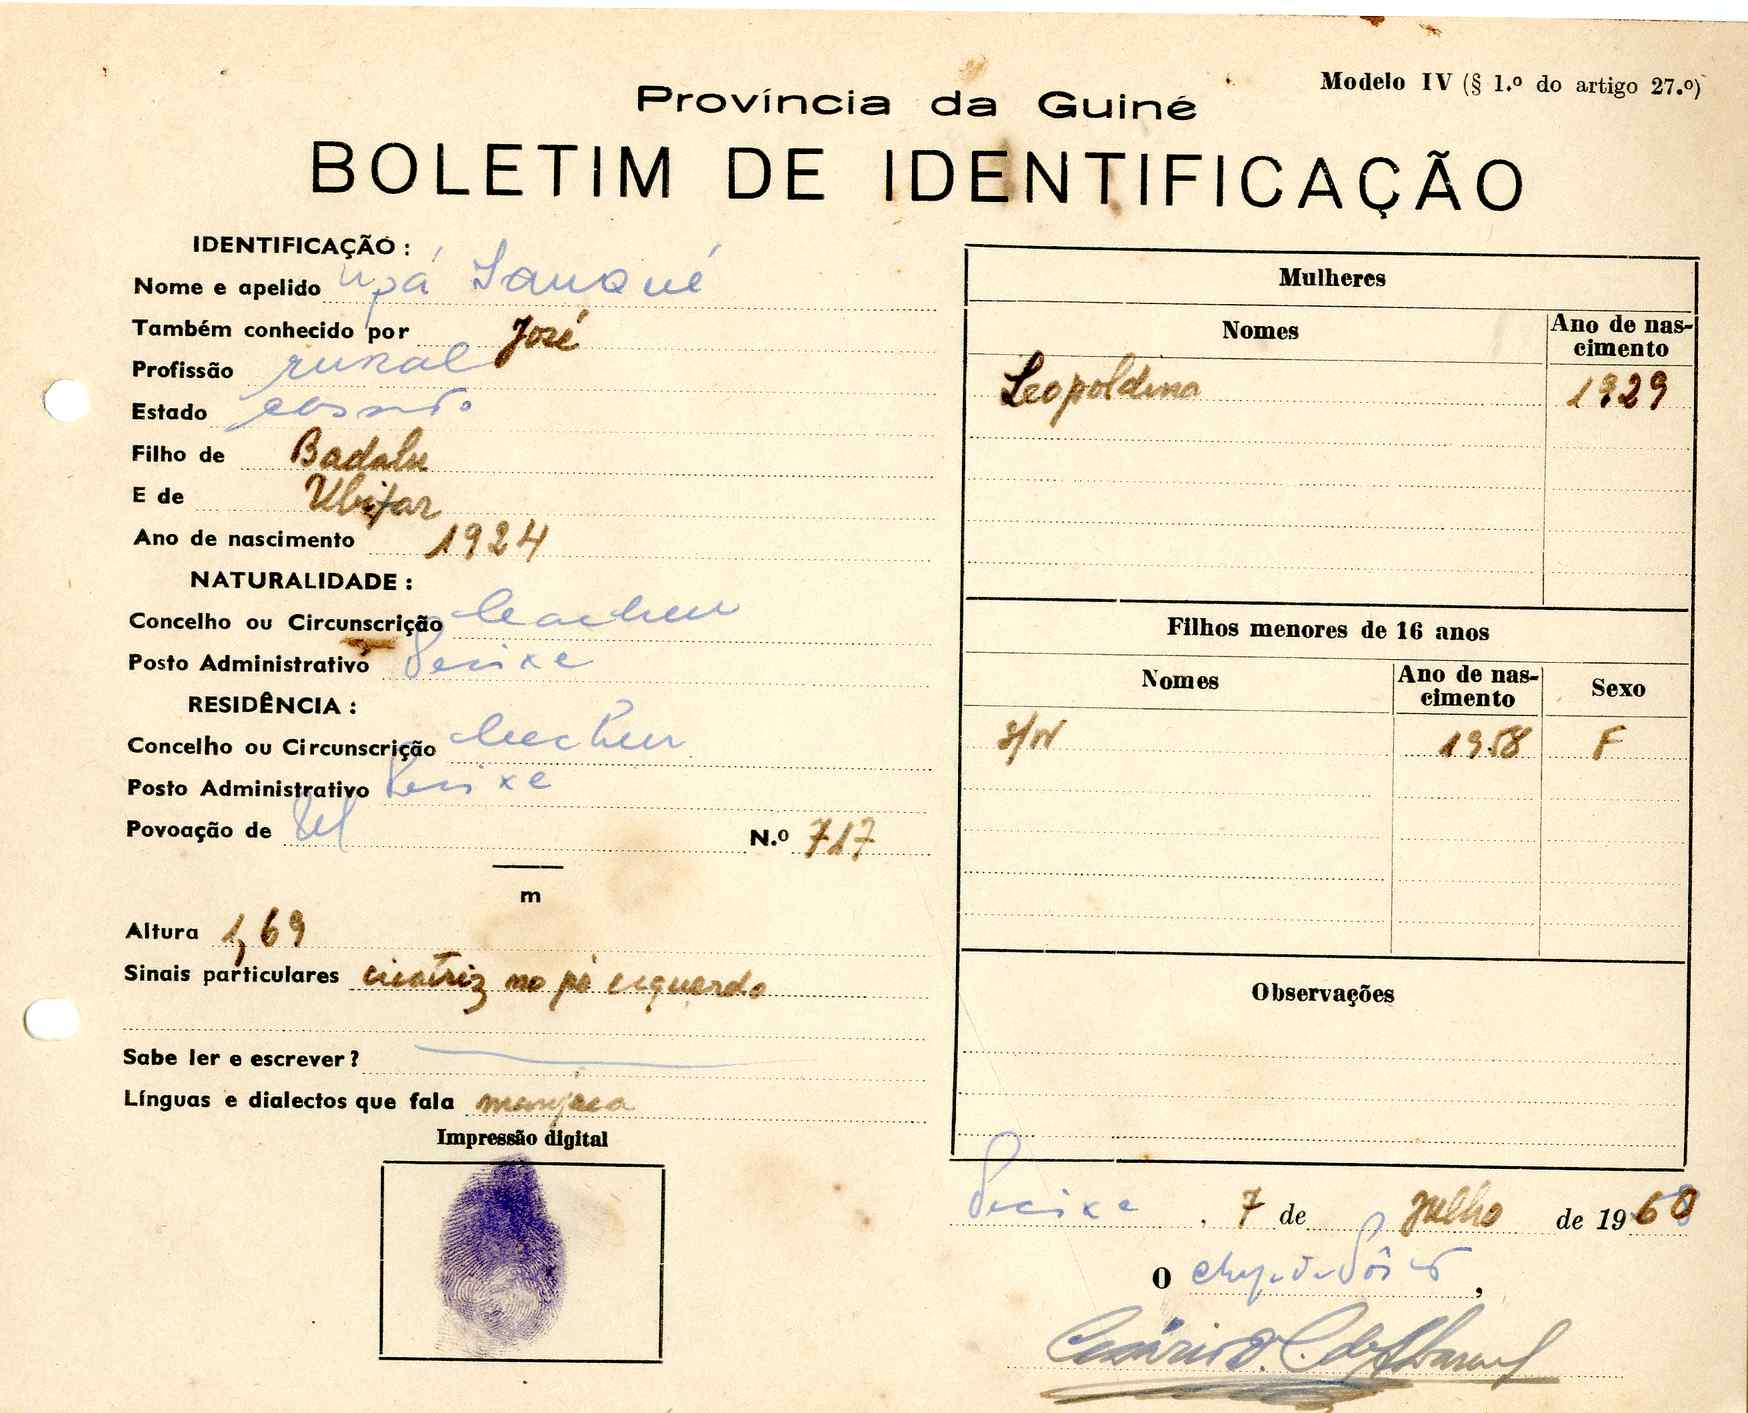 Modelo IV (§ 1.º do artigo 27.º)
Província da Guiné
BOLETIM DE IDENTIFICAÇÃO
IDENTIFICAÇÃO :
Nome e apelido Upá Sanqué
Também conhecido por José
Profissão rural
Estado casado
Filho de Badalu
E de
Ano de nascimento 1924
NATURALIDADE :
Concelho ou Circunscrição Cacheu
Posto Administrativo Pecixe
RESIDÊNCIA :
Concelho ou Circunscrição Cacheu
Posto Administrativo Pecixe
Povoação de N.º 717
m
Altura 1,69
Sinais particulares cicatriz no pé esquerdo
Sabe ler e escrever ?
Línguas e dialectos que fala manjaca
Impressão digital
Mulheres
Nomes Ano de nas-
cimento
Leopoldina 1929
Filhos menores de 16 anos
Nomes Ano de nas-
cimento Sexo
S/N 1958 F
Observações
Pecixe , 7 de Julho de 1960
O chefe de Pôsto,